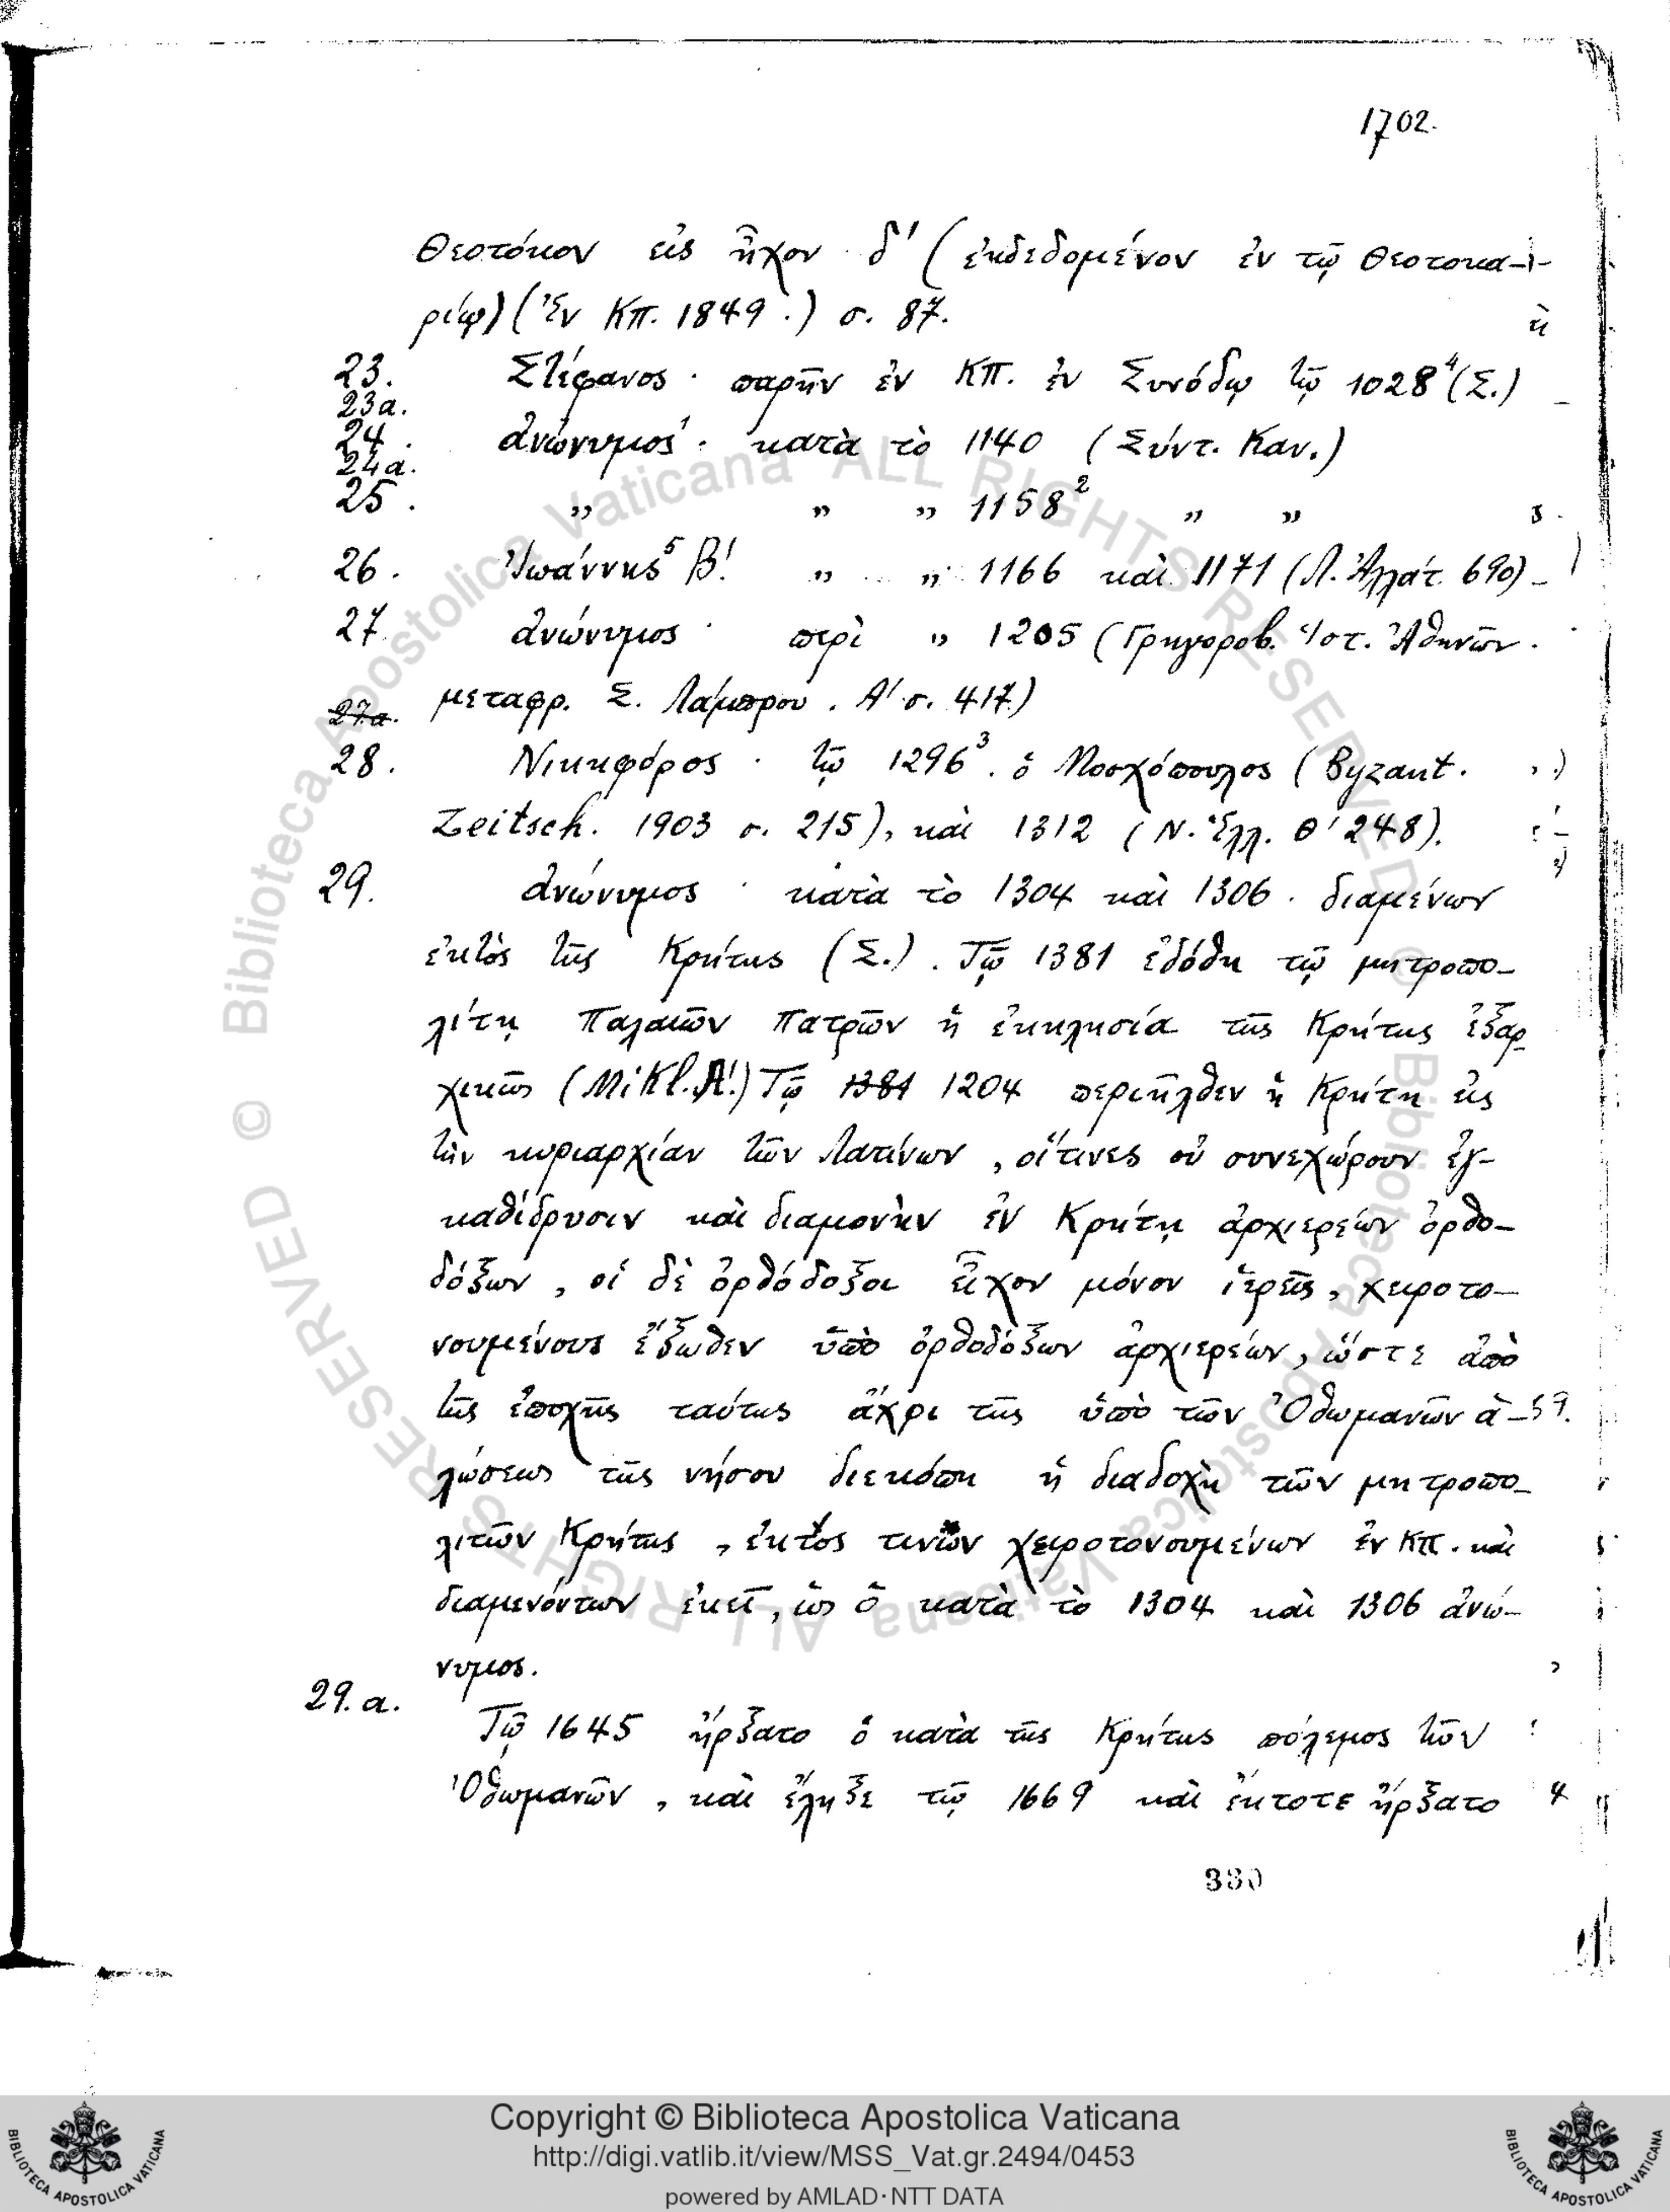 1702.
Θεοτόκον εἰς ἦχον δ' (ἐκδεδομένον ἐν τῷ Θεοτοκα-
ρίῳ) (Ἐν Κπ. 1849.) σ. 87.
23. Στέφανος · παρῆν ἐν Κπ. ἐν Συνόδῳ τῷ 1028⁴ (Σ.)
23a.
24. ἀνώνυμος · κατὰ τὸ 1140 (Σύντ. Καν.)
24a.
25. „ „ „ 1158² „ „
26. Ἰωάννης⁵ Β'. „ „ 1166 καὶ 1171 (Λ. Ἀλλάτ. 690)
27. ἀνώνυμος · περὶ „ 1205 (Γρηγοροβ. Ἱστ. Ἀθηνῶν.
27.a. μεταφρ. Σ. Λάμπρου. Α' σ. 417.)
28. Νικηφόρος · τῷ 1296³. ὁ Μοσχόπουλος (Byzant.
Zeitsch. 1903 σ. 215), καὶ 1312 (Ν. Ἑλλ. Θ' 248).
29. ἀνώνυμος · κατὰ τὸ 1304 καὶ 1306. διαμένων
ἐκτὸς τῆς Κρήτης (Σ.). Τῷ 1381 ἐδόθη τῷ μητροπο-
λίτῃ Παλαιῶν Πατρῶν ἡ ἐκκλησία τῆς Κρήτης ἐξαρ-
χικῶς (Mikl. Α'.) Τῷ 1381 1204 περιῆλθεν ἡ Κρήτη εἰς
τὴν κυριαρχίαν τῶν Λατίνων, οἵτινες οὐ συνεχώρουν ἐγ-
καθίδρυσιν καὶ διαμονὴν ἐν Κρήτῃ ἀρχιερέων ὀρθο-
δόξων, οἱ δὲ ὀρθόδοξοι εἶχον μόνον ἱερεῖς, χειροτο-
νουμένους ἔξωθεν ὑπὸ ὀρθοδόξων ἀρχιερέων, ὥστε ἀπὸ
τῆς ἐποχῆς ταύτης ἄχρι τῆς ὑπὸ τῶν Ὀθωμανῶν ἁ-
λώσεως τῆς νήσου διεκόπη ἡ διαδοχὴ τῶν μητροπο-
λιτῶν Κρήτης, ἐκτὸς τινῶν χειροτονουμένων ἐν Κπ. καὶ
διαμενόντων ἐκεῖ, ὡς ὁ κατὰ τὸ 1304 καὶ 1306 ἀνώ-
νυμος.
29.a. Τῷ 1645 ἤρξατο ὁ κατὰ τῆς Κρήτης πόλεμος τῶν
Ὀθωμανῶν, καὶ ἔληξε τῷ 1669 καὶ ἔκτοτε ἤρξατο
330
© Biblioteca Apostolica Vaticana ALL RIGHTS RESERVED © Biblioteca Apostolica Vaticana ALL RIGHTS RESERVED
Copyright © Biblioteca Apostolica Vaticana
http://digi.vatlib.it/view/MSS_Vat.gr.2494/0453
powered by AMLAD·NTT DATA
BIBLIOTECA APOSTOLICA VATICANA
BIBLIOTECA APOSTOLICA VATICANA